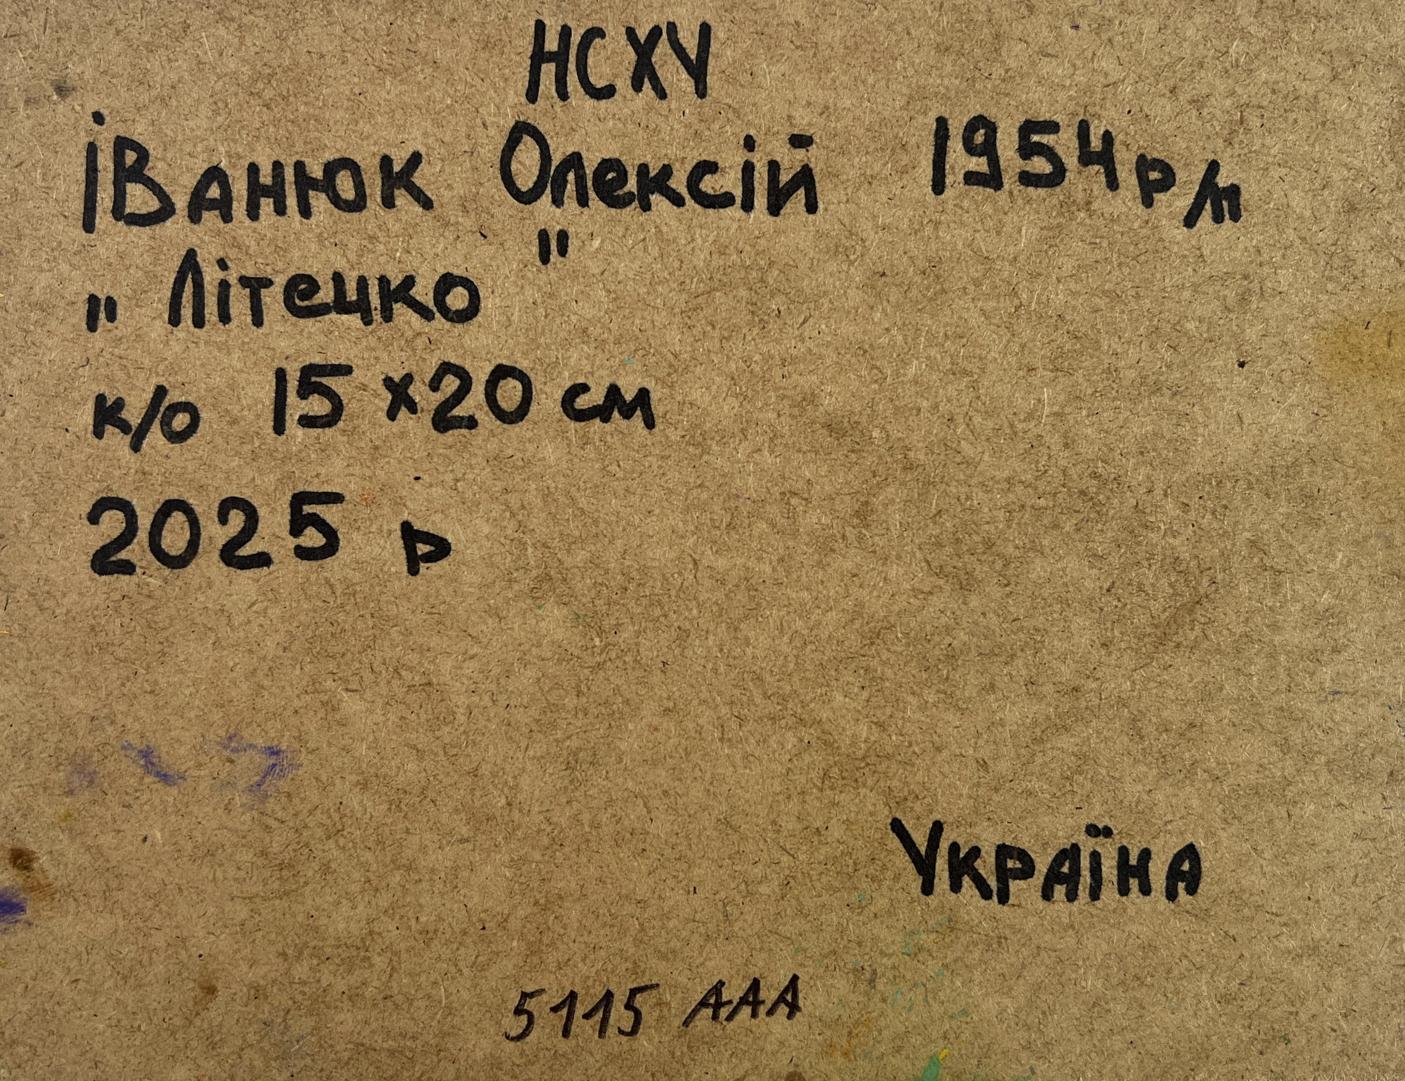 НСХУ
Іванюк Олексій 1954 р/н
„Літечко"
к/о 15 х 20 см
2025 р
Україна
5115 ААА